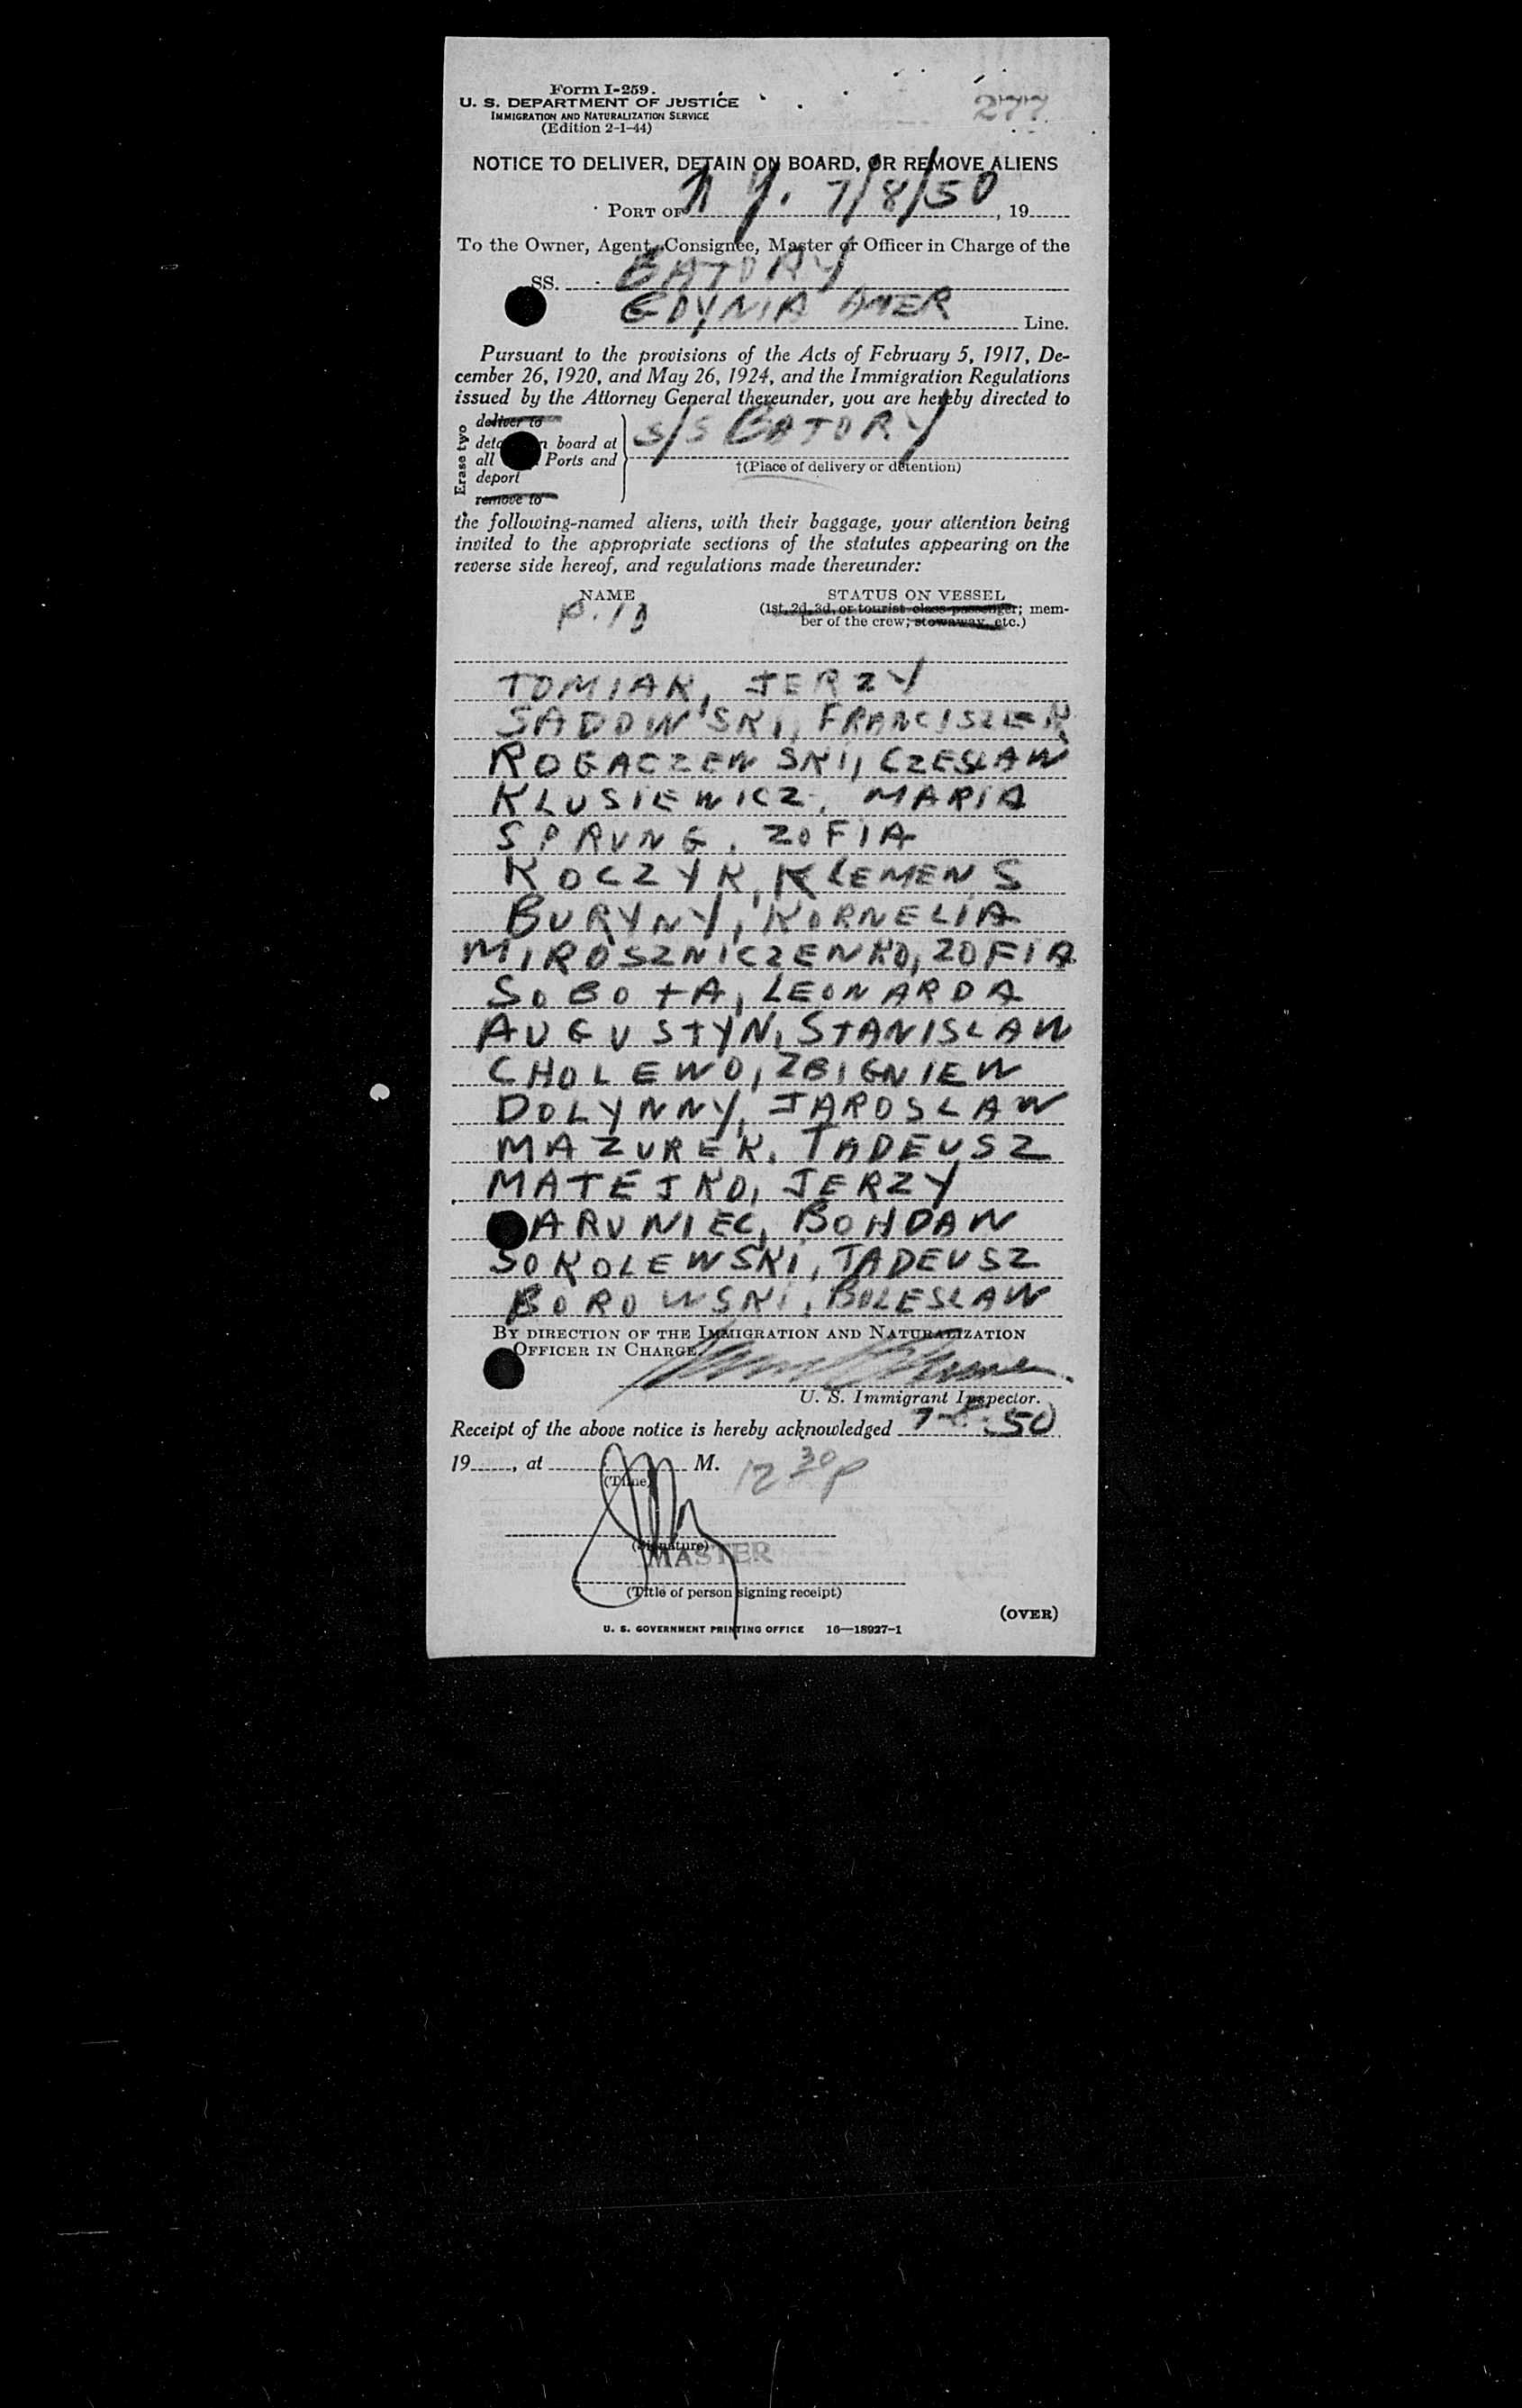 Form I-259.
U. S. DEPARTMENT OF JUSTICE
IMMIGRATION AND NATURALIZATION SERVICE
(Edition 2-1-44)
277
NOTICE TO DELIVER, DETAIN ON BOARD, OR REMOVE ALIENS
PORT OF N Y. 7/8/50, 19
To the Owner, Agent, Consignee, Master or Officer in Charge of the
SS. BATORY
GDYNIA AMER Line.
Pursuant to the provisions of the Acts of February 5, 1917, De-
cember 26, 1920, and May 26, 1924, and the Immigration Regulations
issued by the Attorney General thereunder, you are hereby directed to
Erase two
deliver to
board at
all Ports and
deport
remove to
S/S BATORY
†(Place of delivery or detention)
the following-named aliens, with their baggage, your attention being
invited to the appropriate sections of the statutes appearing on the
reverse side hereof, and regulations made thereunder:
NAME
STATUS ON VESSEL
(1st, 2d, 3d, or tourist class passenger; mem-
ber of the crew; stowaway, etc.)
TOMIAK, JERZY
SADOWSKI, FRANCISZEK
ROGACZEWSKI, CZESLAW
KLUSIEWICZ, MARIA
SPRUNG, ZOFIA
KOCZYK, KLEMENS
BURYNY, KORNELIA
MIROSZNICZENKO, ZOFIA
SOBOTA, LEONARDA
AUGUSTYN, STANISLAW
CHOLEWO, ZBIGNIEW
DOLYNNY, JAROSLAW
MAZUREK, TADEUSZ
MATEJKO, JERZY
ARUNIEC, BOHDAN
SOKOLEWSKI, TADEUSZ
BOROWSKI, BOLESLAW
BY DIRECTION OF THE IMMIGRATION AND NATURALIZATION
OFFICER IN CHARGE.
U. S. Immigrant Inspector.
Receipt of the above notice is hereby acknowledged 7-8-50
19, at M. 12 30 p
(Time)
(Signature)
MASTER
(Title of person signing receipt)
(OVER)
U. S. GOVERNMENT PRINTING OFFICE 16—18927-1